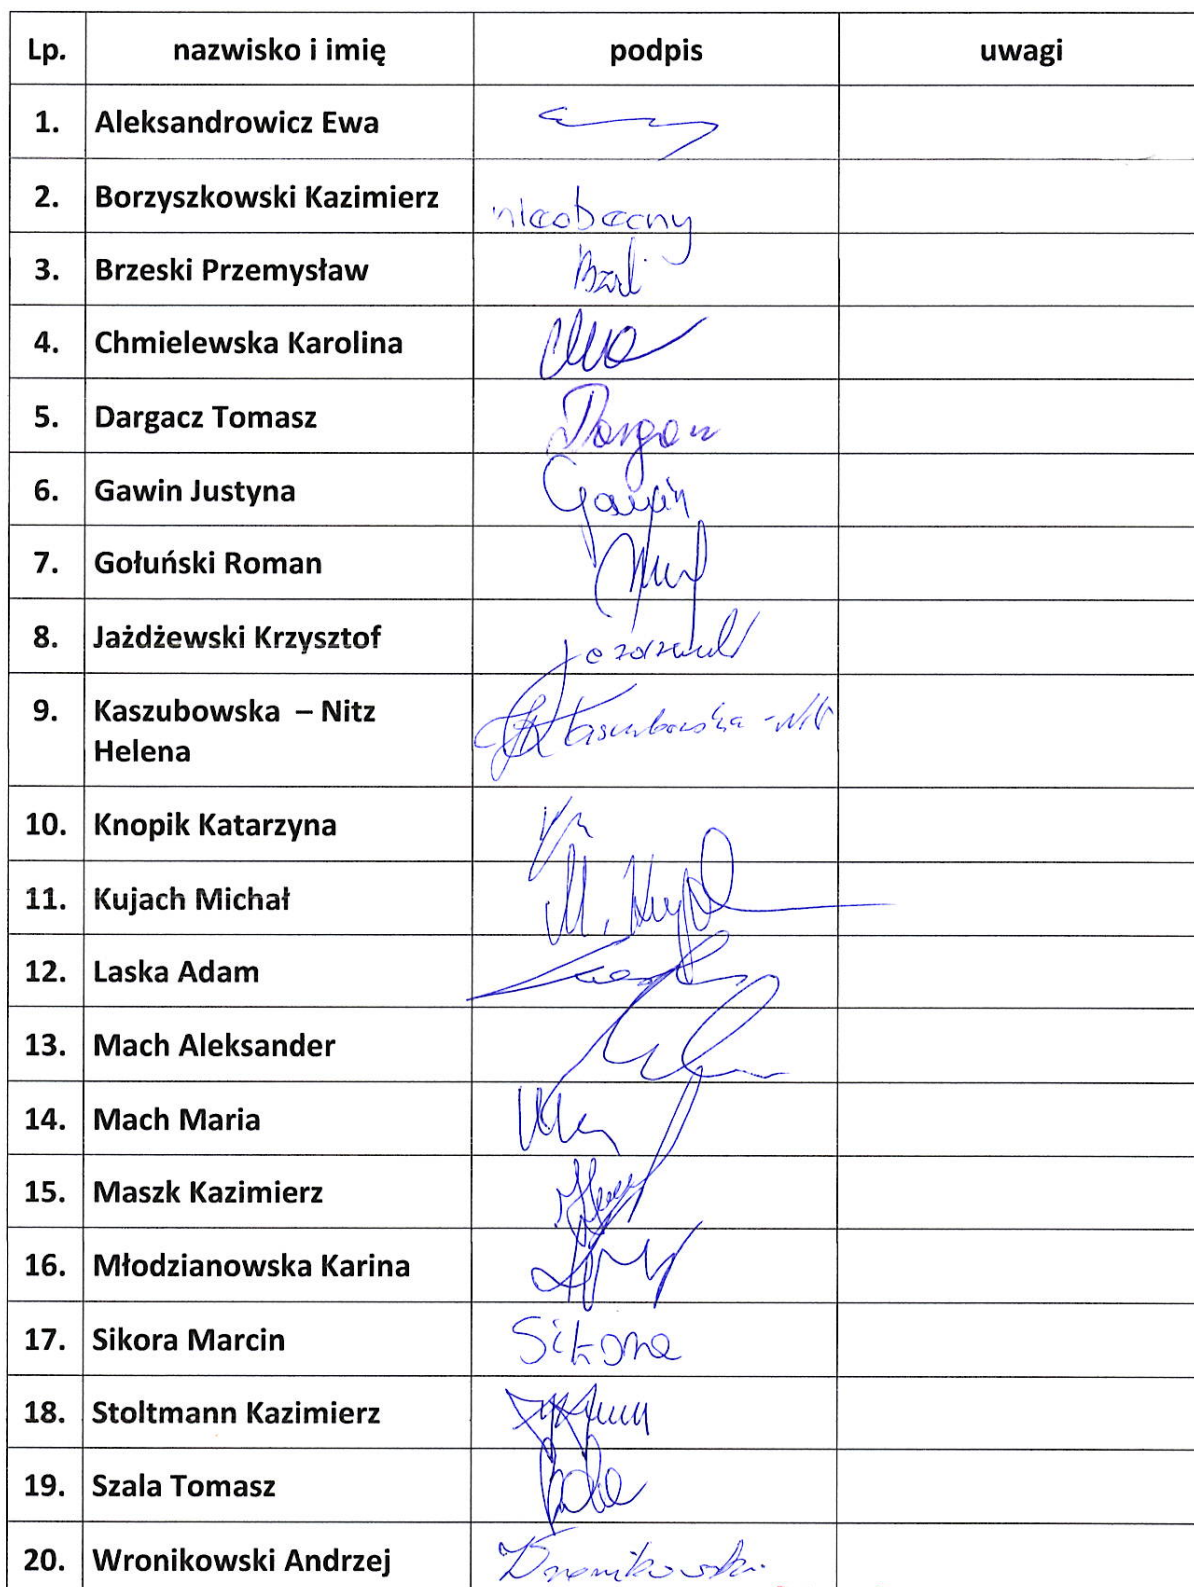 Lp. nazwisko i imię podpis uwagi
1. Aleksandrowicz Ewa
2. Borzyszkowski Kazimierz nieobecny
3. Brzeski Przemysław
4. Chmielewska Karolina
5. Dargacz Tomasz
6. Gawin Justyna Gawin
7. Gołuński Roman
8. Jażdżewski Krzysztof
9. Kaszubowska – Nitz Kaszubowska - Nitz
Helena
10. Knopik Katarzyna
11. Kujach Michał
12. Laska Adam
13. Mach Aleksander
14. Mach Maria
15. Maszk Kazimierz
16. Młodzianowska Karina
17. Sikora Marcin Sikora
18. Stoltmann Kazimierz
19. Szala Tomasz
20. Wronikowski Andrzej Wronikowski